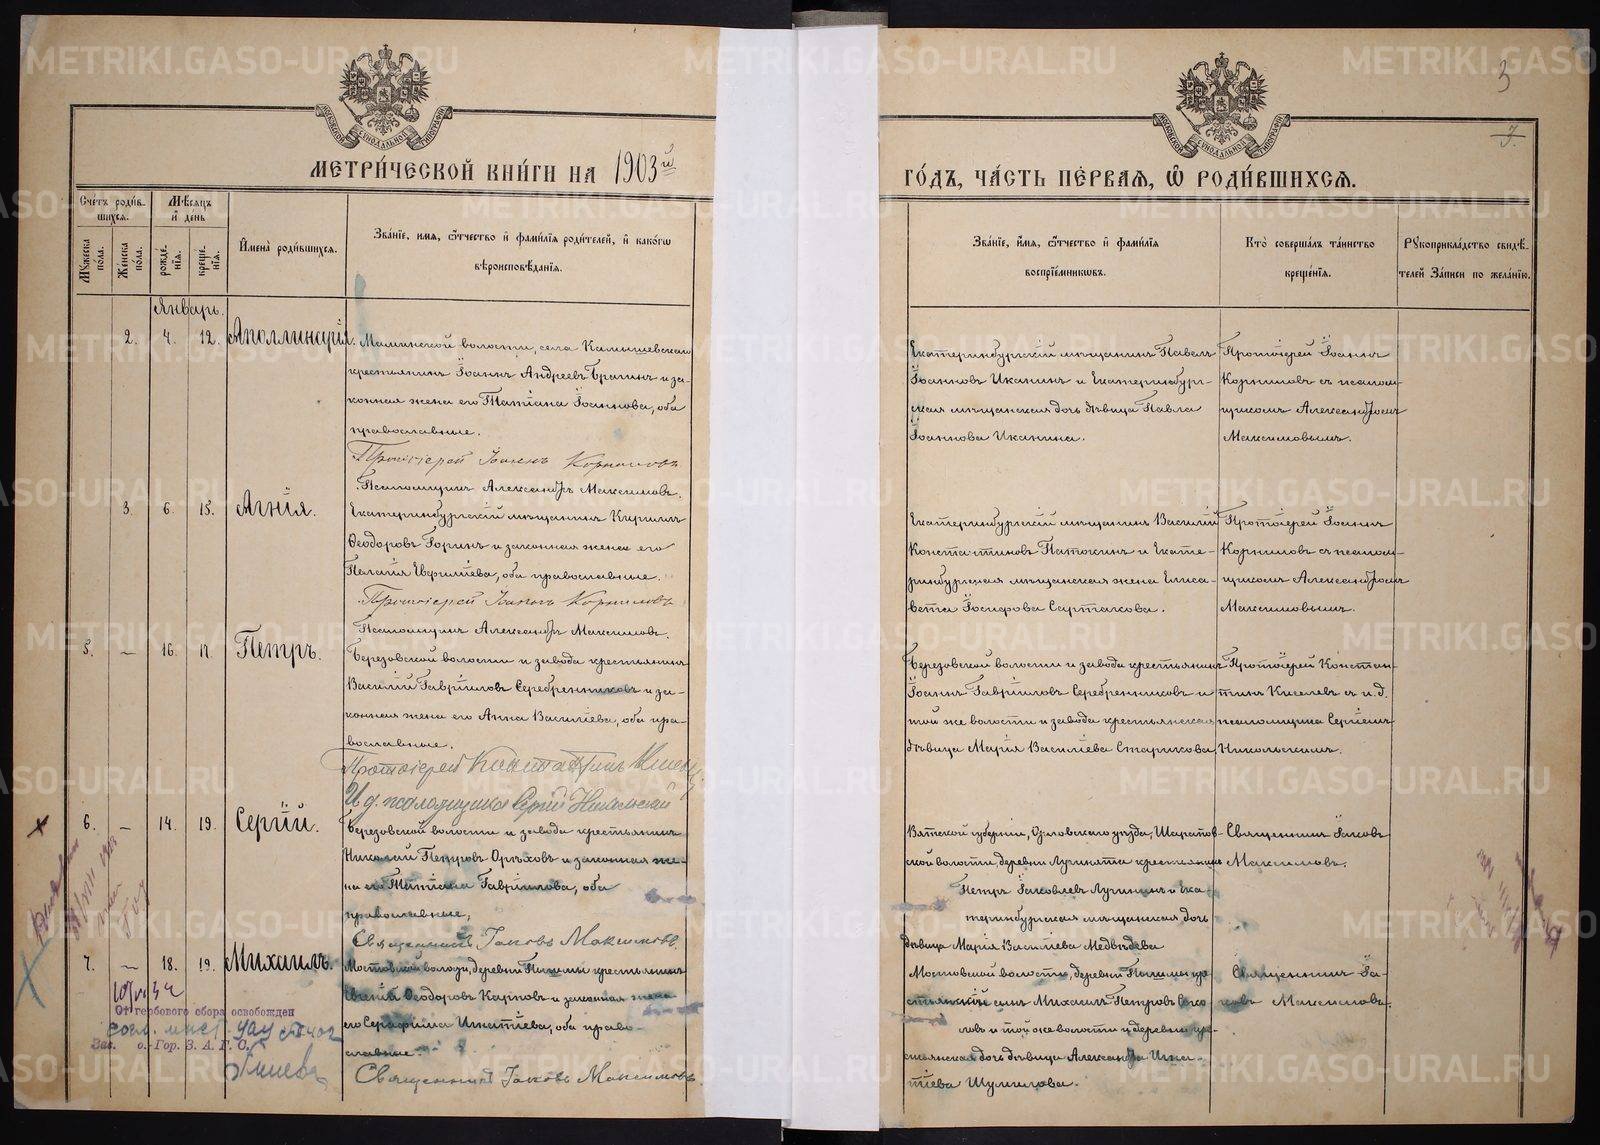 МЕТРИ́ЧЕСКОЙ КНИ́ГИ НА 1903й
ГО́ДЪ, ЧА́СТЬ ПЕ́РВАЯ, Ѡ РОДИ́ВШИХСЯ.
3
Счетъ роди́в-
шихся.
Мѣсяцъ
и де́нь
Му́жеска по́ла.
Же́нска по́ла.
рожде́нія.
креще́нія.
Имена̀ роди́вшихся.
Зва́ніе, имя, ѻтчество и фами́лія роди́телей, и како́гѡ
вѣроисповѣ́данія.
Зва́ніе, имя, ѻтчество и фами́лія
воспріе́мниковъ.
Кто̀ соверша́лъ та́инство
креще́нія.
Рукоприкла́дство свидѣ́-
телей за́писи по жела́нію.
Январь.
2. 4. 12. Аполлинарія.
Маминской волости, села Калишевскаго
крестьянинъ Іоаннъ Андреевъ Брагинъ и за-
конная жена его Татіана Іоаннова, оба
православные.
Протоіерей Іоаннъ Корниловъ
Псаломщикъ Александръ Максимовъ.
Екатеринбургскій мѣщанинъ Павелъ
Іоанновъ Иканинъ и Екатеринбург-
ская мѣщанская дочь дѣвица Павла
Іоаннова Иканина.
Протоіерей Іоаннъ
Корниловъ съ псалом-
щикомъ Александромъ
Максимовымъ.
3. 6. 15. Агнія.
Екатеринбургскій мѣщанинъ Кириллъ
Ѳеодоровъ Горинъ и законная жена его
Пелагія Евфиміева, оба православные.
Протоіерей Іоаннъ Корниловъ
Псаломщикъ Александръ Максимовъ.
Екатеринбургскій мѣщанинъ Василій
Константиновъ Патокинъ и Екате-
ринбургская мѣщанская жена Елиса-
вета Іосифова Сартакова.
Протоіерей Іоаннъ
Корниловъ съ псалом-
щикомъ Александромъ
Максимовымъ.
5. — 16. 17. Петръ.
Березовской волости и завода крестьянинъ
Василій Гавріиловъ Серебренниковъ и за-
конная жена его Анна Василіева, оба пра-
вославные.
Протоіерей Константинъ Киселев
И д. псаломщика Сергій Никольскій
Березовской волости и завода крестьянинъ
Іоаннъ Гавріиловъ Серебренниковъ и
той же волости и завода крестьянская
дѣвица Марія Василіева Старикова.
Протоіерей Констан-
тинъ Киселевъ съ и.д.
псаломщика Сергіемъ
Никольскимъ.
6. — 14. 19. Сергій.
Березовской волости и завода крестьянинъ
Николай Петровъ Орѣховъ и законная же-
на его Татіана Гавріилова, оба
православные,
Священникъ Іаковъ Максимовъ.
Вятской губерніи, Орловскаго уѣзда, Шарапов-
ской волости, деревни Лучината крестьянинъ
Петръ Іаковлевъ Лучининъ и Ека-
теринбургская мѣщанская дочь
дѣвица Марія Василіева Медвѣдева
Священникъ Іаковъ
Максимовъ.
7. — 18. 19. Михаилъ.
Мостовской волости, деревни Пышмы крестьянинъ
Евгеній Ѳеодоровъ Карповъ и законная жена
его Серафима Игнатіева, оба право-
славные.
Священникъ Іаковъ Максимовъ.
Мостовской волости, деревни Пышмы кре-
стьянскій сынъ Михаилъ Петровъ Соко-
ловъ и той же волости и деревни кре-
стьянская дочь дѣвица Александра Игна-
тіева Шумилова.
Священникъ Іа-
ковъ Максимовъ.
От гербового сбора освобожден
Зав. о.-Гор. З. А. Г. С.
METRIKI.GASO-URAL.RU